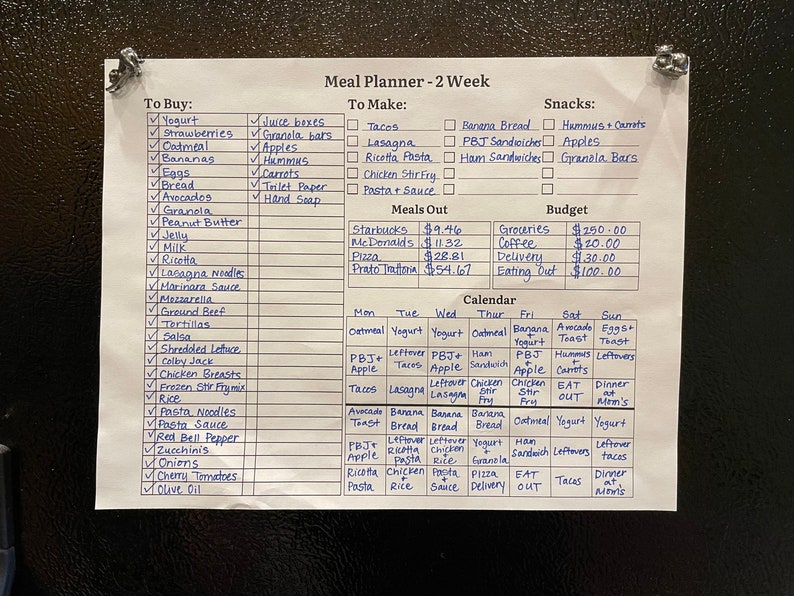 Meal Planner - 2 Week
To Buy:
✓ Yogurt
✓ Strawberries
✓ Oatmeal
✓ Bananas
✓ Eggs
✓ Bread
✓ Avocados
✓ Granola
✓ Peanut Butter
✓ Jelly
✓ Milk
✓ Ricotta
✓ Lasagna Noodles
✓ Marinara Sauce
✓ Mozzarella
✓ Ground Beef
✓ Tortillas
✓ Salsa
✓ Shredded Lettuce
✓ Colby Jack
✓ Chicken Breasts
✓ Frozen Stir Fry mix
✓ Rice
✓ Pasta Noodles
✓ Pasta Sauce
✓ Red Bell Pepper
✓ Zucchinis
✓ Onions
✓ Cherry Tomatoes
✓ Olive Oil
✓ Juice boxes
✓ Granola bars
✓ Apples
✓ Hummus
✓ Carrots
✓ Toilet Paper
✓ Hand Soap
To Make:
Tacos
Lasagna
Ricotta Pasta
Chicken Stir Fry
Pasta + Sauce
Banana Bread
PBJ Sandwiches
Ham Sandwiches
Snacks:
Hummus + Carrots
Apples
Granola Bars
Meals Out
Starbucks $9.46
McDonalds $11.32
Pizza $28.81
Prato Trattoria $54.67
Budget
Groceries $250.00
Coffee $20.00
Delivery $30.00
Eating Out $100.00
Calendar
Mon Tue Wed Thur Fri Sat Sun
Oatmeal
Yogurt
Yogurt
Oatmeal
Banana
+
Yogurt
Avocado
Toast
Eggs +
Toast
PBJ +
Apple
Leftover
Tacos
PBJ +
Apple
Ham
Sandwich
PBJ
+
Apple
Hummus
+
Carrots
Leftovers
Tacos
Lasagna
Leftover
Lasagna
Chicken
Stir
Fry
Chicken
Stir
Fry
EAT
OUT
Dinner
at
Mom's
Avocado
Toast
Banana
Bread
Banana
Bread
Banana
Bread
Oatmeal
Yogurt
Yogurt
PBJ +
Apple
Leftover
Ricotta
Pasta
Leftover
Chicken
+ Rice
Yogurt
+
Granola
Ham
Sandwich
Leftovers
Leftover
tacos
Ricotta
Pasta
Chicken
+
Rice
Pasta
+
Sauce
Pizza
Delivery
EAT
OUT
Tacos
Dinner
at
Mom's